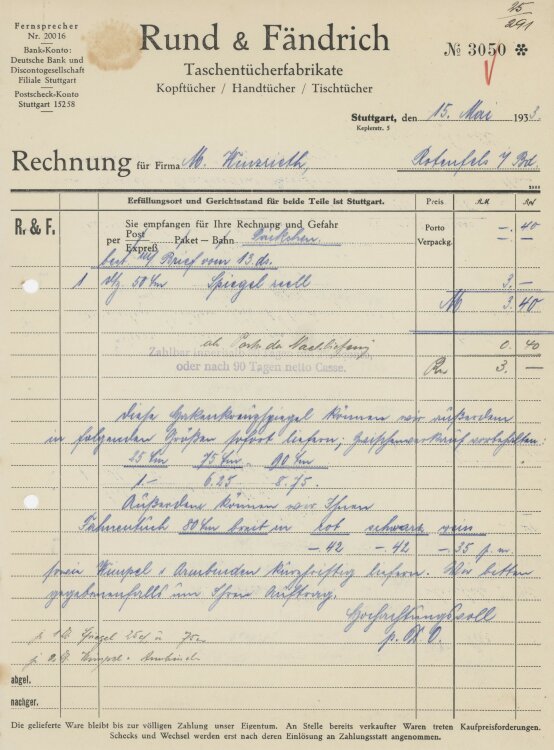 15/
291
Fernsprecher
Nr. 20016
Bank-Konto:
Deutsche Bank und
Discontogesellschaft
Filiale Stuttgart
Postscheck-Konto
Stuttgart 15258
Rund & Fändrich
Taschentücherfabrikate
Kopftücher / Handtücher / Tischtücher
№ 3050 *
Stuttgart, den 15. Mai 1933.
Kopierstr. 5
Rechnung für Firma M. Winzrieth, Rotenfels i/Bd.
Erfüllungsort und Gerichtsstand für beide Teile ist Stuttgart. Preis R.M. Rpf
R. & F. Sie empfangen für Ihre Rechnung und Gefahr Porto -.40
per Post Paket - Bahn Päckchen Verpackg. -.-
Expreß
best. Brief vom 13. ds.
1 Dtz. 50 Cm Spiegel 3.-
M 3.40
ab Porto der Nachlieferung 0.40
Zahlbar
oder nach 90 Tagen netto Casse. Rm 3.-
Diese Hakenkreuzspiegel können wir außerdem
in folgenden Größen sofort liefern; Zwischenverkauf vorbehalten:
25 Cm 75 Cm 90 Cm
1.- 6.25 8.75
Außerdem können wir Ihnen
Fahnentuch 80 Cm breit in rot schwarz weiss
-.42 -.42 -.35 p. m.
sowie Wimpel & Armbinden kurzfristig liefern. Wir bitten
gegebenenfalls um Ihren Auftrag.
Hochachtungsvoll
Spiegel 25 u 75
Wimpel & Armbinde
abgel.
nachger.
Die gelieferte Ware bleibt bis zur völligen Zahlung unser Eigentum. An Stelle bereits verkaufter Waren treten Kaufpreisforderungen.
Schecks und Wechsel werden erst nach deren Einlösung an Zahlungsstatt angenommen.